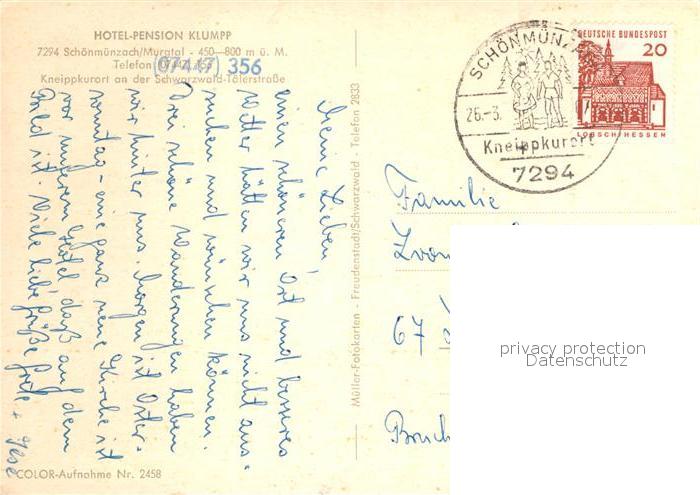 HOTEL-PENSION KLUMPP
7294 Schönmünzach/Murgtal - 450—800 m ü. M.
Telefon
(07447) 356
Kneippkurort an der Schwarzwald-Tälerstraße
Meine Lieben,
einen schöneren Ort und besseres
Wetter hätten wir uns nicht aus-
suchen und wünschen können.
Drei schöne Wanderungen haben
wir hinter uns. Morgen ist Oster-
sonntag - eine ganz neue Kirche ist
vor unserem Hotel, daß auf dem
Bild ist. Viele liebe Grüße
COLOR-Aufnahme Nr. 2458
Müller-Fotokarten - Freudenstadt/Schwarzwald - Telefon 2833
SCHÖNMÜNZ
26.-3.
Kneippkurort
7294
DEUTSCHE BUNDESPOST
20
LORSCH/HESSEN
Familie
67
privacy protection
Datenschutz